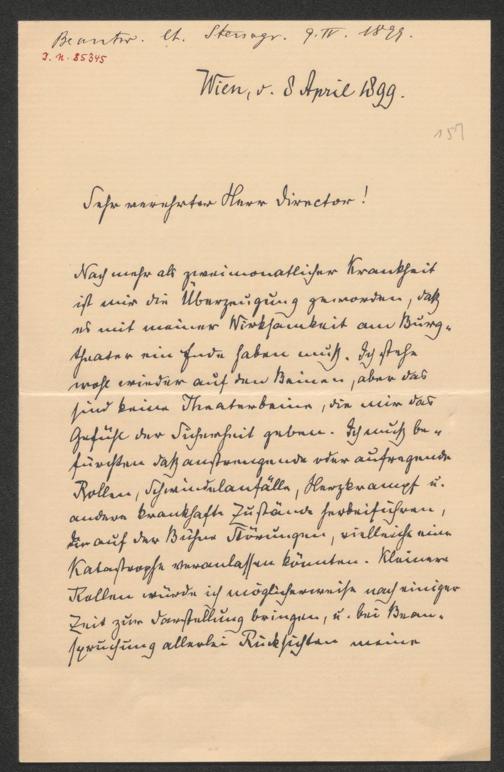 Beantw. lt. Stenogr. 9. IV. 1899.
I.N. 85345
Wien, d. 8 April 1899.
157
Sehr verehrter Herr Director!
Nach mehr als zweimonatlicher Krankheit
ist mir die Überzeugung geworden, daß
es mit meiner Wirksamkeit am Burg-
theater ein Ende haben muß. Ich stehe
wohl wieder auf den Beinen, aber das
sind keine Theaterbeine, die mir das
Gefühl der Sicherheit geben. Ich muß be-
fürchten daß anstrengende oder aufregende
Rollen, Schwindelanfälle, Herzkrampf u.
andere krankhafte Zustände herbeiführen,
die auf der Bühne Störungen, vielleicht eine
Katastrophe veranlassen könnten. Kleinere
Rollen würde ich möglicherweise nach einiger
Zeit zur Darstellung bringen, u. bei Bean-
spruchung allerlei Rücksichten meine